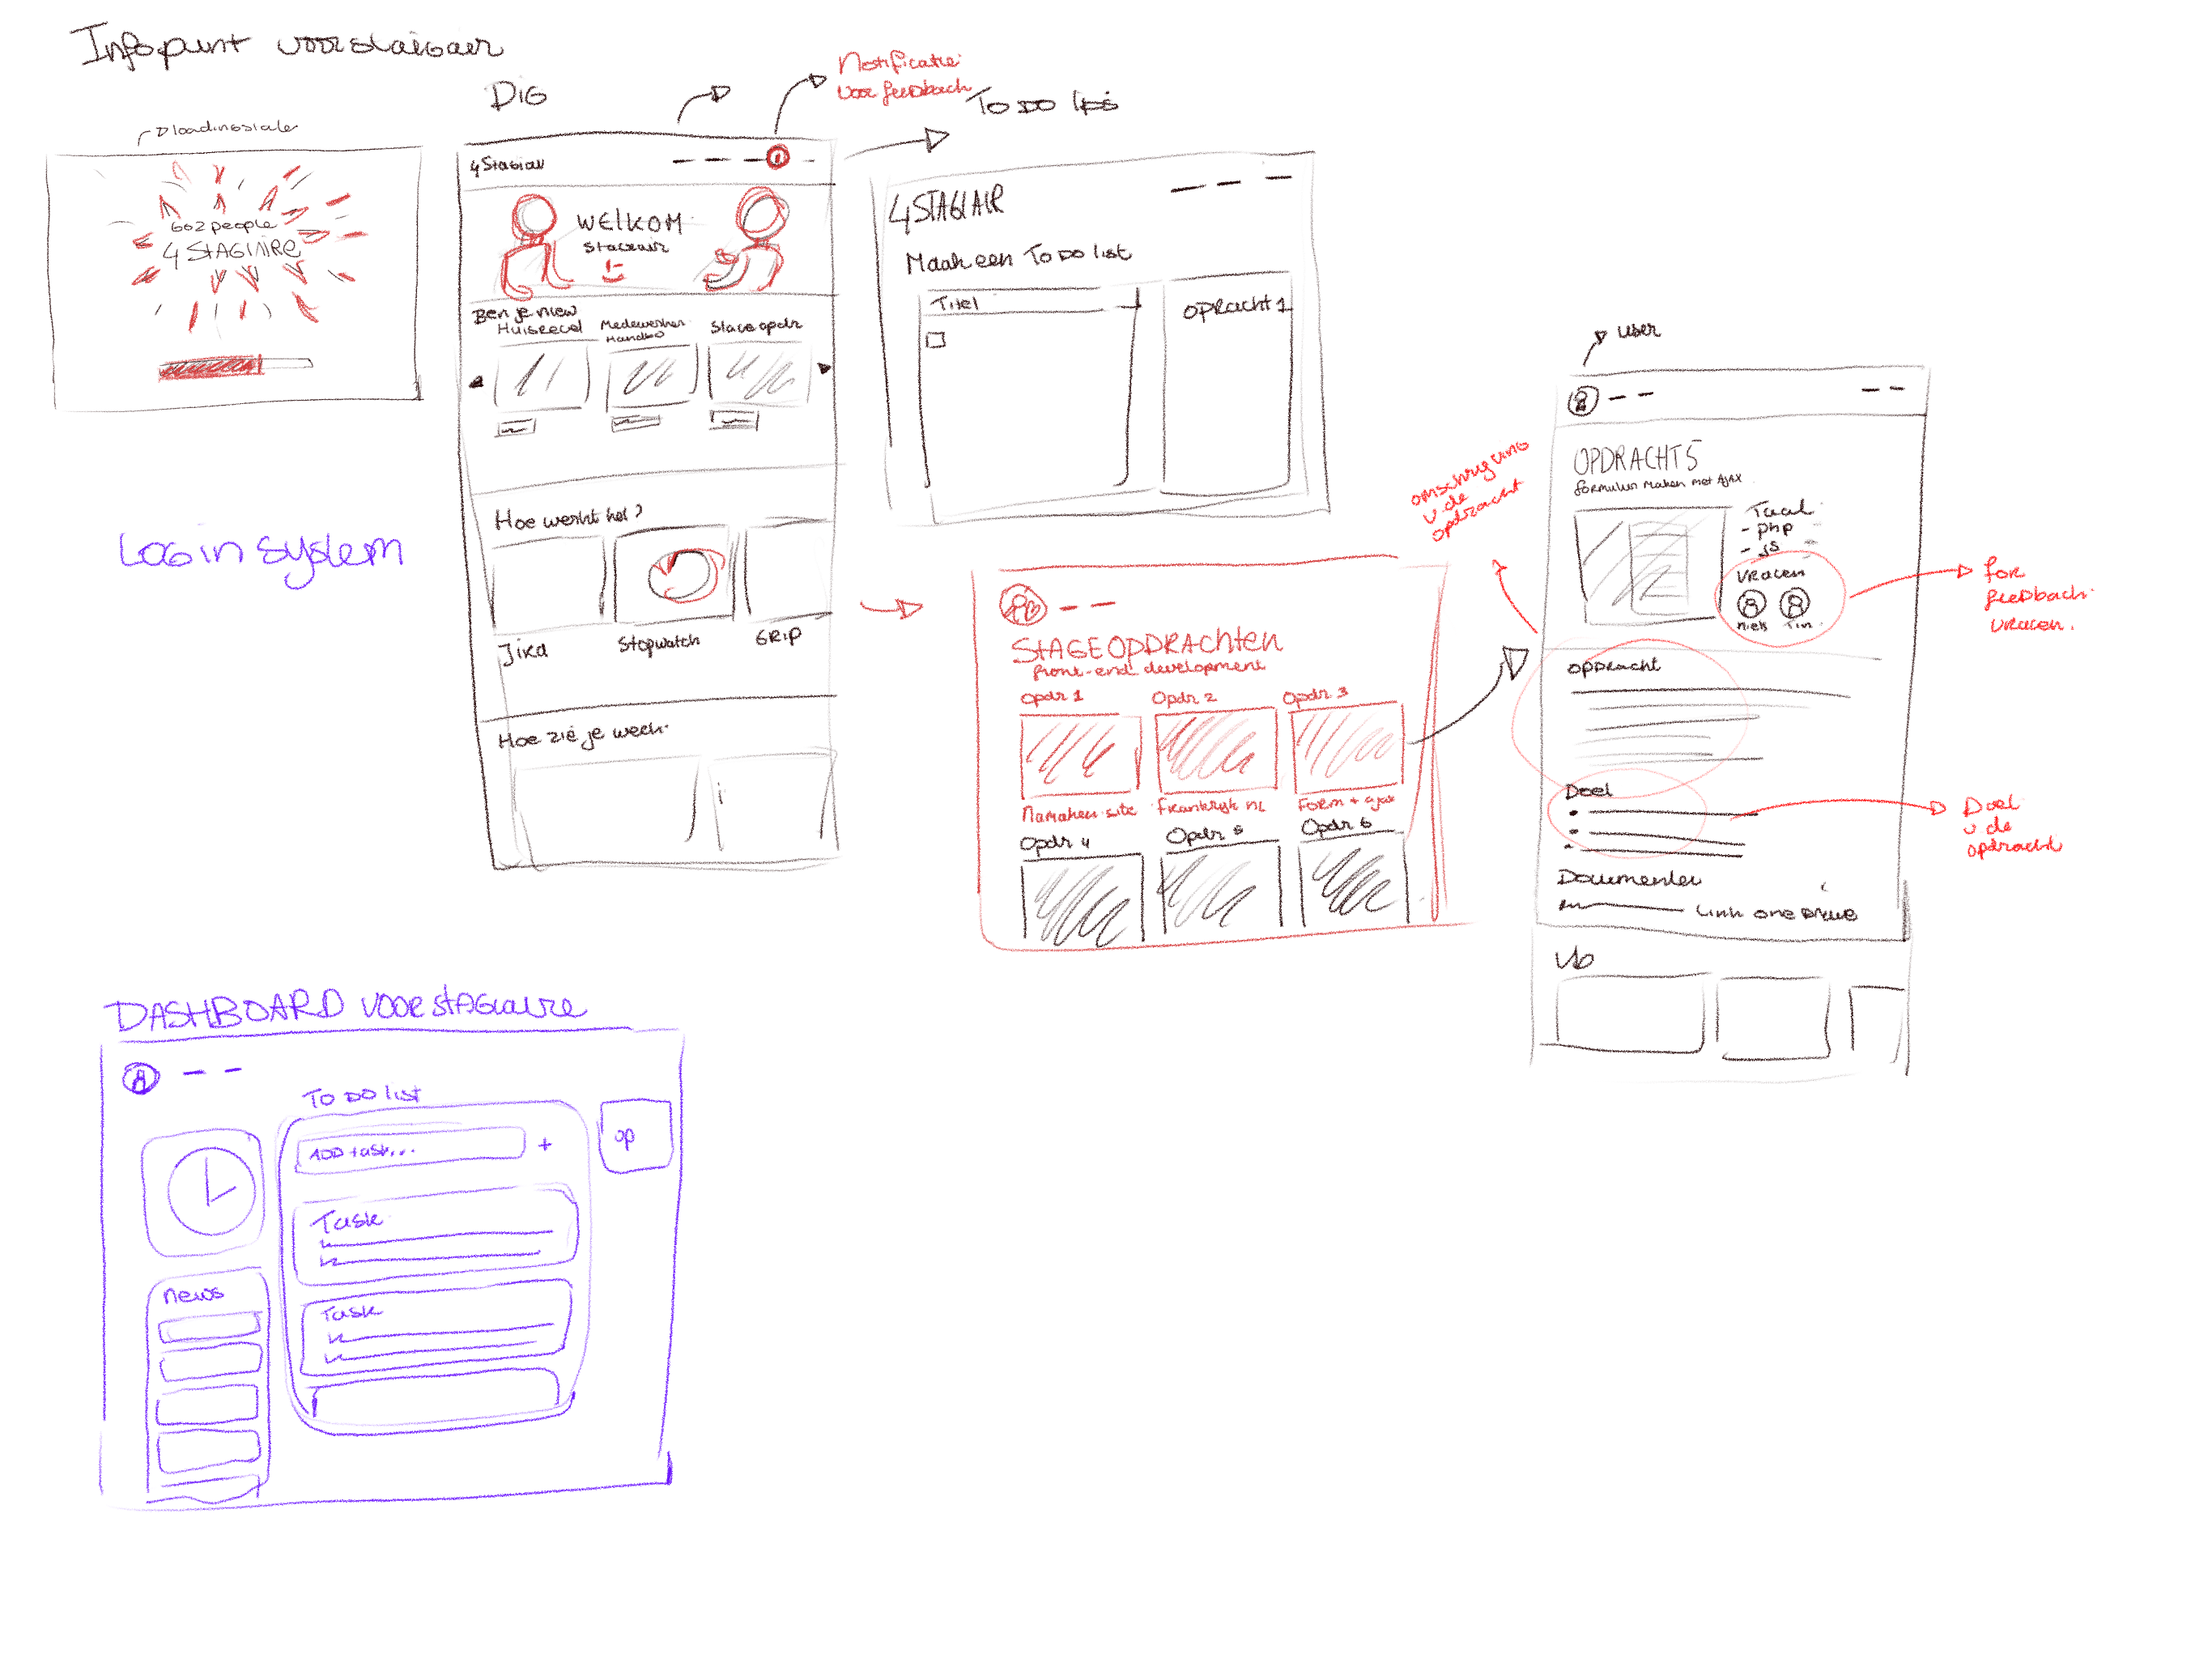 Infopunt voor staigair
loadingstate
602 people
4 STAGIAIRE
Login system
DIG
Notificatie
voor feedback
4 Stagiair
WELKOM
Stageair
Ben je niew
Huisregel
Medewerker
Handbo
Stage opdr
Hoe werkt het?
Jira
Stopwatch
GRIP
Hoe zie je week
TO DO
4 STAGIAIR
Maak een To Do list
Titel
OPDRACHT 1
STAGEOPDRACHTEN
front-end development
Opdr 1
Opdr 2
Opdr 3
Namaken site
frankrijk nl
Form + ajax
Opdr 4
Opdr 5
Opdr 6
omschrijving
v.de
opdracht
user
OPDRACHT 5
formulier maken met AJAX
Taal
- php
- JS
VRAGEN
Niels
Tim
for
feedback
vragen.
OPDRACHT
Doel
Doel
v de
opdracht
Documenten
Link one Drive
DASHBOARD VOOR STAGIAIRE
TO DO list
ADD task...
+
op
Task
Task
news